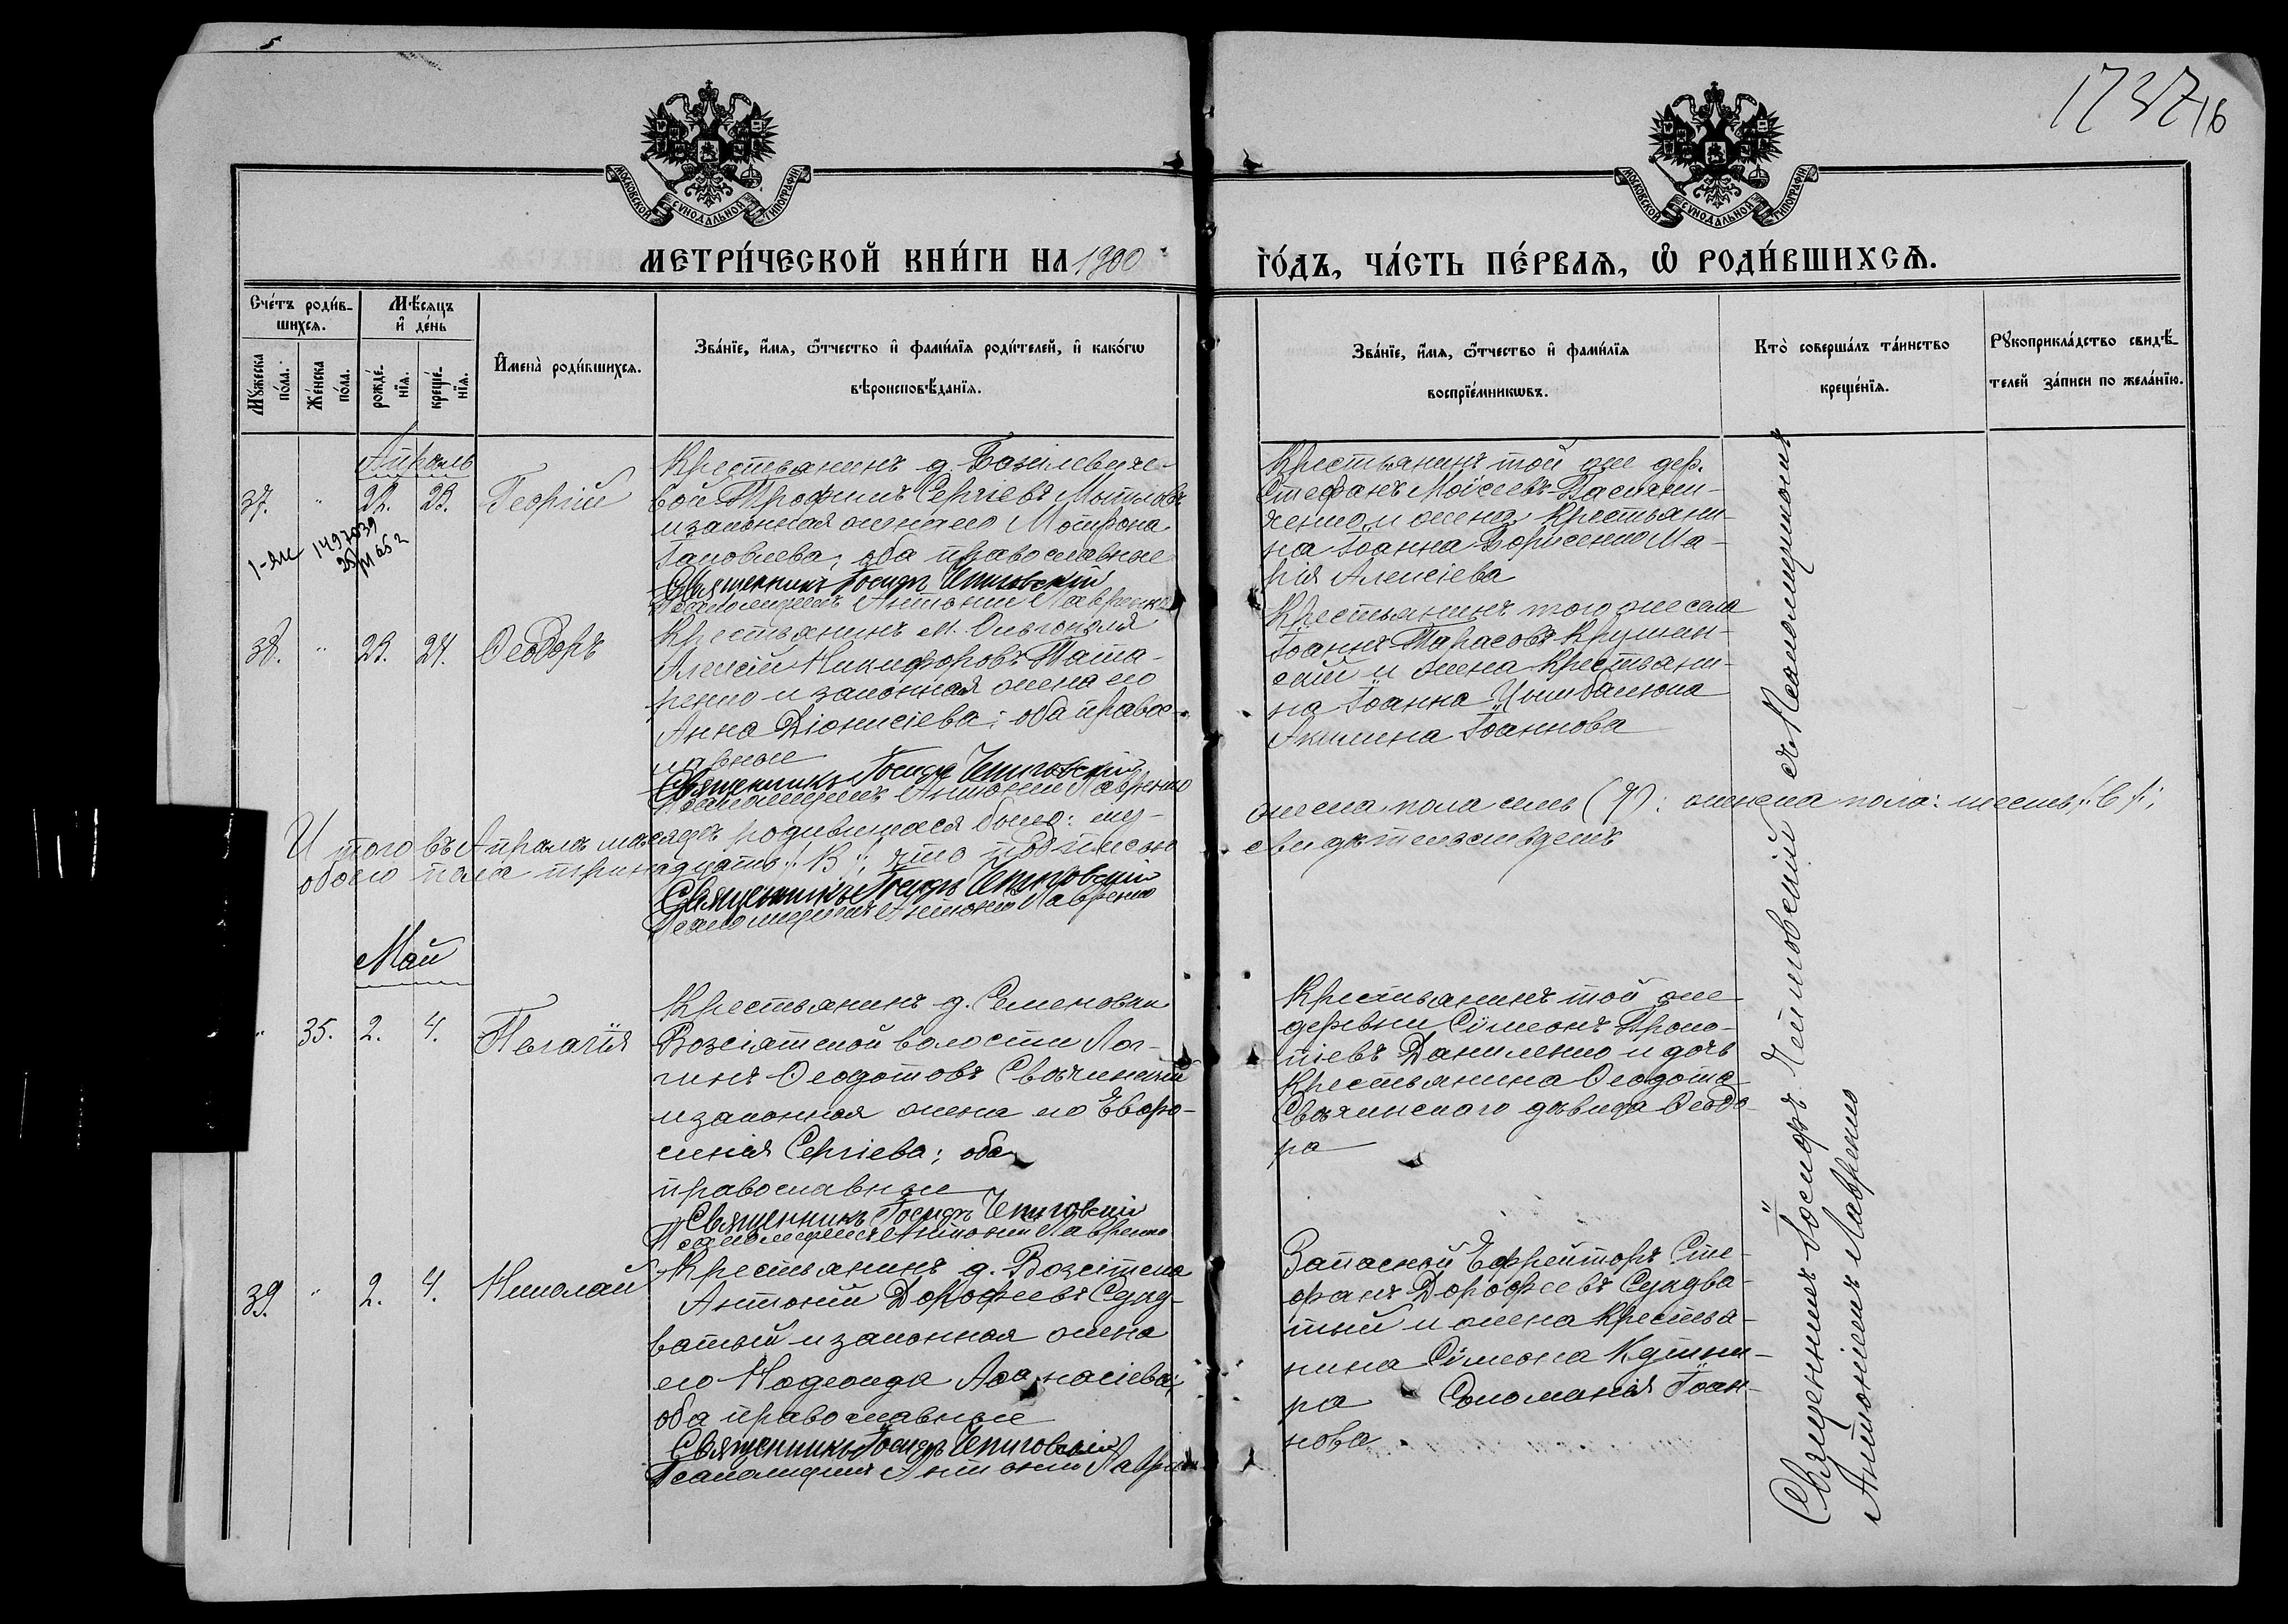 5
173716
МОСКОВСКОЙ СУНОДАЛЬНОЙ ТИПОГРАФІИ
МОСКОВСКОЙ СУНОДАЛЬНОЙ ТИПОГРАФІИ
МЕТРИ́ЧЕСКОЙ КНИ́ГИ НА 1900
ГО́ДЪ, ЧА́СТЬ ПЕ́РВАѦ, Ѡ҆ РОДИ́ВШИХСѦ.
Сче́тъ роди́в-
шихсѧ.
Мꙋ́жеска по́ла.
Же́нска по́ла.
Мѣ́сѧцъ
и҆ де́нь
рожде́-
нїѧ.
креще́-
нїѧ.
И҆мена̀ роди́вшихсѧ.
Зва́нїе, и҆́мѧ, ѻ҆́тчество и҆ фами́лїѧ роди́телей, и҆ како́гѡ
вѣроисповѣ́данїѧ.
Зва́нїе, и҆́мѧ, ѻ҆́тчество и҆ фами́лїѧ
воспрїе́мникѡвъ.
Кто̀ соверша́лъ та́инство
креще́нїѧ.
Рꙋкоприкла́дство свидѣ́-
телей за́писи по жела́нїю.
Апрѣль
37. " 22. 23. Георгій
Крестьянинъ д.
вой Трофимъ Сергіевъ
и законная жена его Матрона
Іаковлева; оба православные
Священникъ Іосифъ Чепиговскій
Псаломщикъ Антоній Лавренко
Крестьянинъ той же дер.
Стефанъ Моисеевъ
и жена крестьяни-
на Іоанна Борисенко Ма-
рія Алексіева
1497039
38. " 23. 24. Ѳеодоръ
Крестьянинъ м. Ольгополя
Алексій Никифоровъ Тата-
ренко и законная жена его
Анна Діонисіева; оба правос-
лавные
Священникъ Іосифъ Чепиговскій
Псаломщикъ Антоній Лавренко
Крестьянинъ того же села
Іоаннъ Тарасовъ Крушен-
скій и жена крестьяни-
на Іоанна Цымбалюка
Акилина Іоаннова
И того въ Апрѣлѣ мѣсяцѣ родившихся было: му-
жеска пола семь (7): женска пола: шесть /: 6 /:;
обоего пола тринадцать /: 13 :/; что подписью
свидѣтельствуемъ
Священникъ Іосифъ Чепиговскій
Псаломщикъ Антоній Лавренко
Май
" 35. 2. 4. Пелагія
Крестьянинъ д. Семеновки
Возсіятской волости Лог-
гинъ Ѳеодотовъ Свѣчинскій
и законная жена его Евфро-
синія Сергіева; оба
православные
Священникъ Іосифъ Чепиговскій
Псаломщикъ Антоній Лавренко
Крестьянинъ той же
деревни Сімеонъ Проко-
піевъ Даниленко и дочь
крестьянина Ѳеодота
Свѣчинскаго дѣвица Ѳеодо-
ра
39. " 2. 4. Николай
Крестьянинъ д.
Антоній Дороѳеевъ Сукд-
ватый и законная жена
его Надежда Аѳанасіева;
оба православные
Священникъ Іосифъ Чепиговскій
Псаломщикъ Антоній Лавренко
Запасной Ефрейторъ Сте-
фанъ Дороѳеевъ Сукдва-
тый и жена крестья-
нина Сімеона Кушни-
ра Соломанія Іоан-
нова
Священникъ Іосифъ Чепиговскій съ Псаломщикомъ
Антоніемъ Лавренко